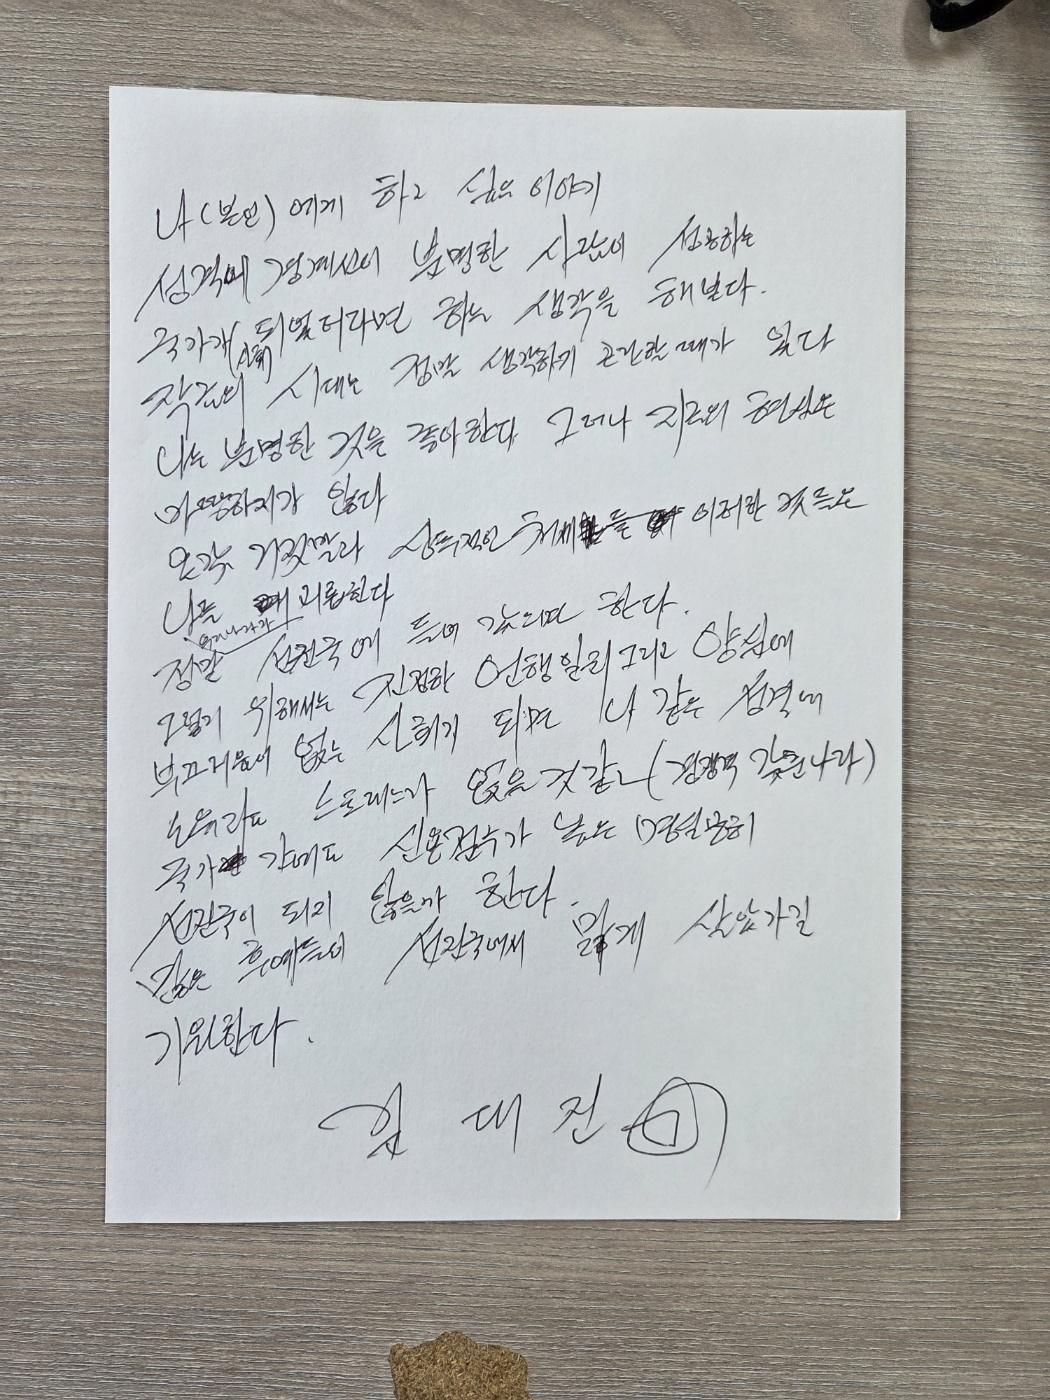 나(본인)에게 하고 싶은 이야기
성격에 경계선이 분명한 사람이 성공하는
국가가(사회) 되었더라면 하는 생각을 해본다.
작금의 시대는 정말 생각하기 곤란할 때가 있다
나는 분명한 것을 좋아한다 그러나 지금의 현실은
마땅하지가 않다
온갖 거짓말과 상투적인 들 이러한 것들은
나를 괴롭힌다
정말 선진국에 들어 갔으면 한다.
그렇기 위해서는 진정한 언행일치 그리고 양심에
부끄러움이 없는 사회가 되면 나 같은 성격에
소유자도 스트레스가 없을 것 같고 (경쟁력 갖춘 나라)
국가 간에도 신용점수가 높은 명실공히
선진국이 되지 않을까 한다.
젊은 후예들이 선진국에서 맑게 살아가길
기원한다.
임 대 진